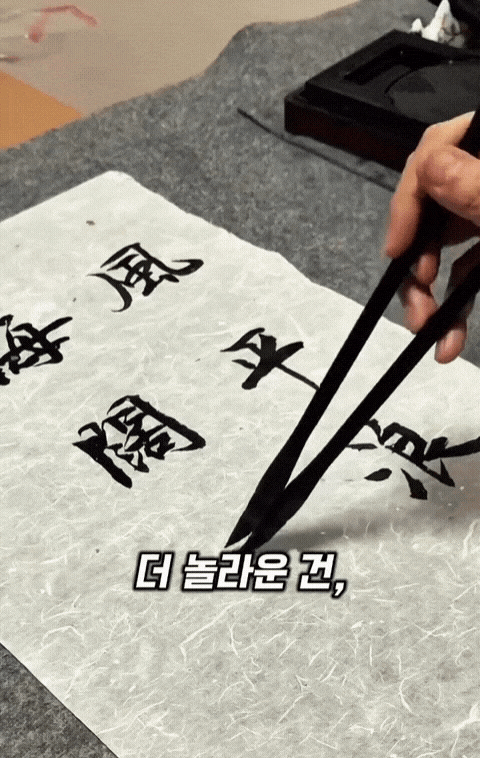 風平浪
闊
더 놀라운 건,